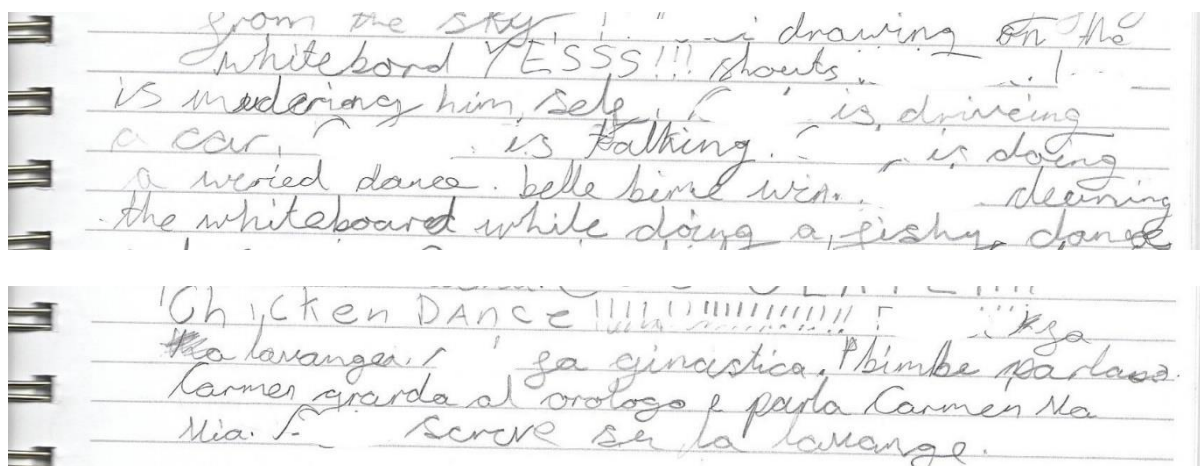 from the sky, drawing on the
whitebord YESSS!!! shouts
is muderiong him, self, is, driveing
a car, is talking. is doing
a weried dance. belle bime win. cleaning
the whiteboard while doing a, fishy, dance
ChicKen DAnce !!!!!!!!!!!!!!!!! fa
la lavangea. fa ginastica. bimbe parla
Carmen grarda al orologo e parla Carmen Na
Mia. scrive su la lavange.